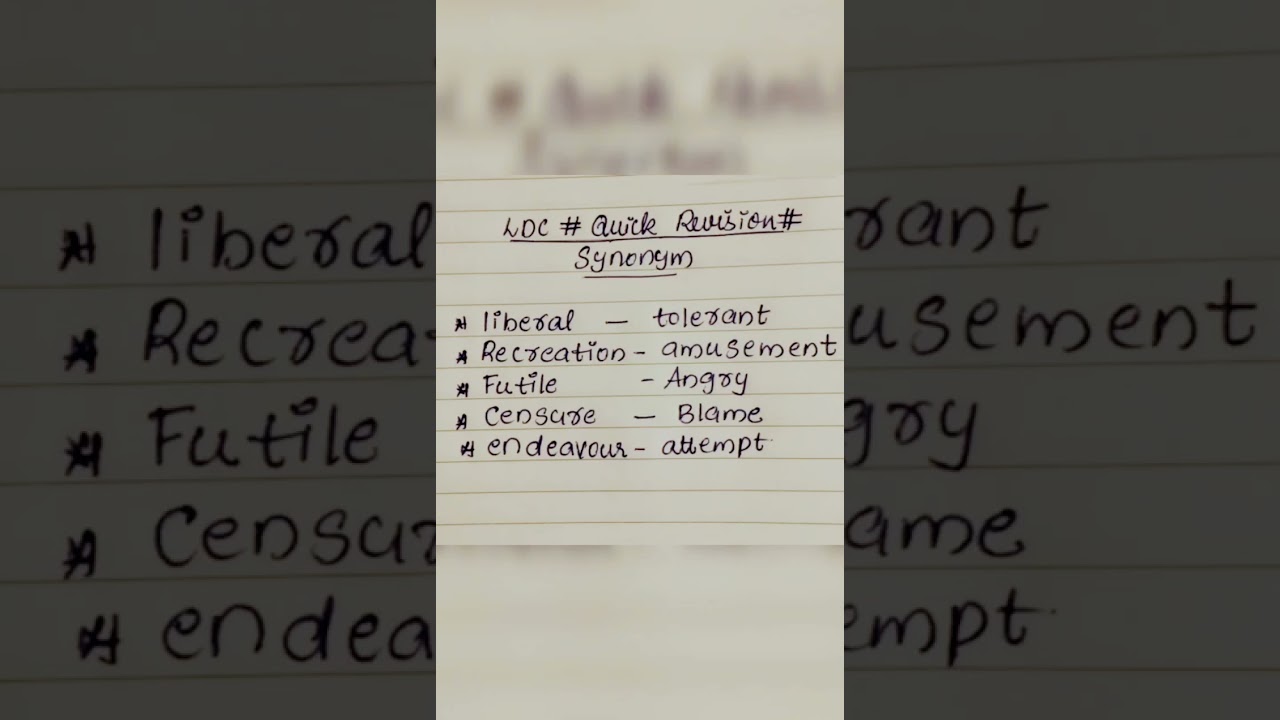 LDC # Quick Revision#
Synonym
* liberal — tolerant
* Recreation - amusement
* Futile - Angry
* Censure — Blame
* endeavour - attempt